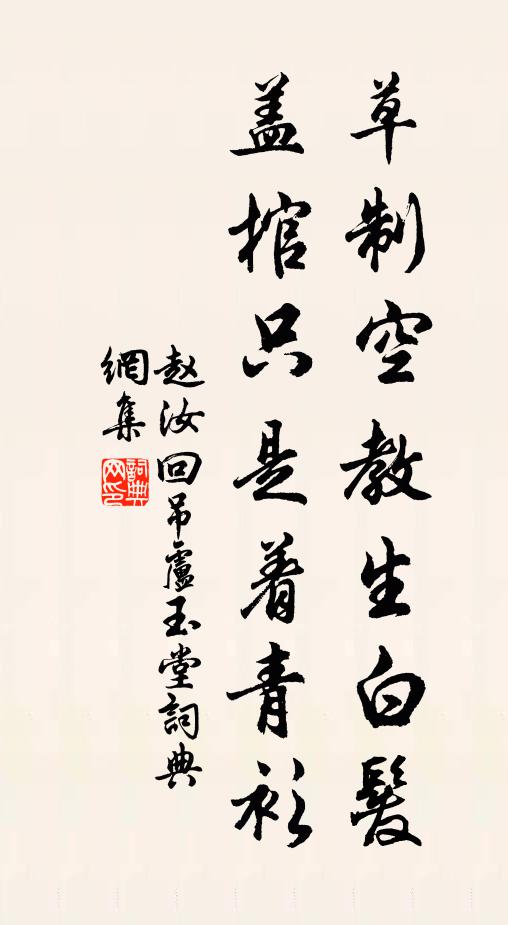 草制空教生白髮
盖棺只是着青衫
赵汝回吊盧玉堂詞典
網集
詞典網印